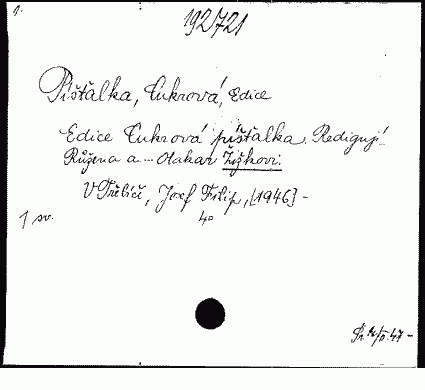 192721
Píšťalka, Cukrová, Edice
Edice Cukrová píšťalka. Redigují
Růžena a - Otakar Žižkovi.
V Třebíči, Josef Filip, [1946] -
1 sv. 4°
47 -